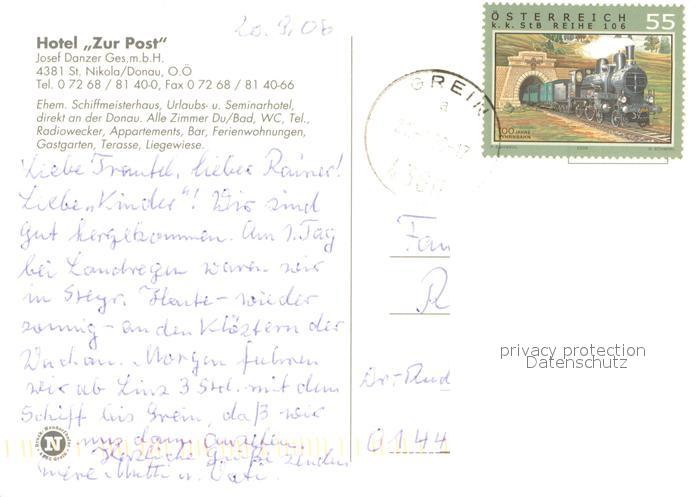 20.9.06
Hotel „Zur Post“
Josef Danzer Ges.m.b.H.
4381 St. Nikola/Donau, O.Ö
Tel. 0 72 68 / 81 40-0, Fax 0 72 68 / 81 40-66
Ehem. Schiffmeisterhaus, Urlaubs- u. Seminarhotel,
direkt an der Donau. Alle Zimmer Du/Bad, WC, Tel.,
Radiowecker, Appartements, Bar, Ferienwohnungen,
Gastgarten, Terasse, Liegewiese.
Liebe Traudel, lieber Rainer!
Liebe „Kinder“! Wir sind
gut hergekommen. Am 1. Tag
bei Landregen waren wir
in Steyr. Heute – wieder
sonnig – an den Klöstern der
Wachau. Morgen fahren
wir ab Linz 3 Std. mit dem
Schiff bis Grein, daß wir
uns dann ansehen.
Herzliche Grüße senden
Mutti u. Vati.
ÖSTERREICH 55
k. k. StB REIHE 106
100 JAHRE
PYHRNBAHN
GREIN
a
4360
Fam
R
Dr.-Rud
0144
privacy protection
Datenschutz
N